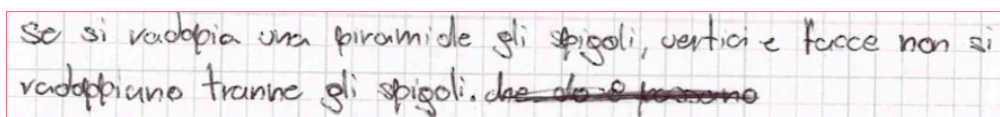 se si radoppia una piramide gli spigoli, vertici e facce non si
radoppiano tranne gli spigoli.